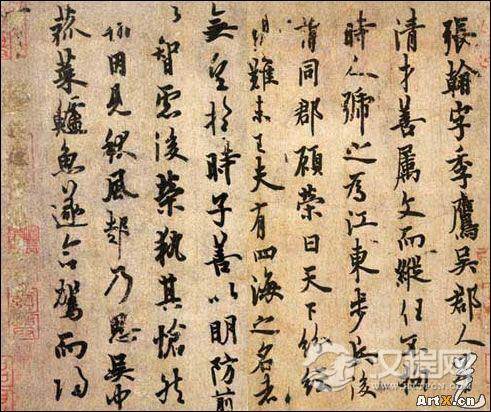 張翰字季鷹吳郡人有
清才善属文而縱任不拘
時人號之為江東步兵後
謂同郡顧榮曰天下紛紜
禍難未已夫有四海之名者
無望於時子善以明防前
以智慮後榮執其愴然
翰因見秋風起乃思吳中
菰菜鱸魚遂命駕而歸
ArtX.cn